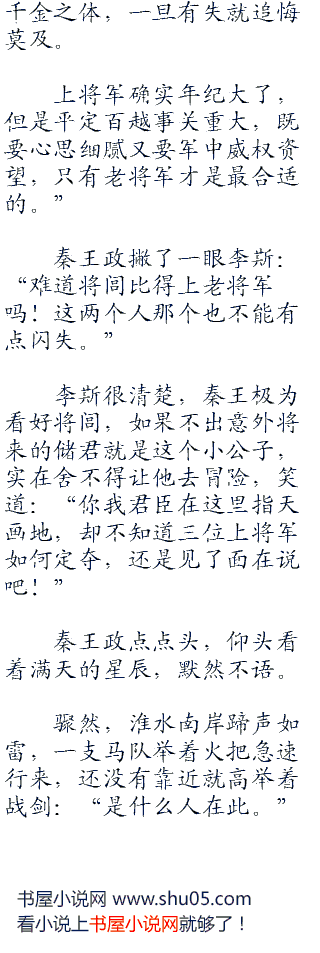 千金之体，一旦有失就追悔
莫及。
上将军确实年纪大了，
但是平定百越事关重大，既
要心思细腻又要军中威权资
望，只有老将军才是最合适
的。”
秦王政撇了一眼李斯：
“难道将闾比得上老将军
吗！这两个人那个也不能有
点闪失。”
李斯很清楚，秦王极为
看好将闾，如果不出意外将
来的储君就是这个小公子，
实在舍不得让他去冒险，笑
道：“你我君臣在这里指天
画地，却不知道三位上将军
如何定夺，还是见了面在说
吧！”
秦王政点点头，仰头看
着满天的星辰，默然不语。
骤然，淮水南岸蹄声如
雷，一支马队举着火把急速
行来，还没有靠近就高举着
战剑：“是什么人在此。”
书屋小说网 www.shu05.com
看小说上书屋小说网就够了！